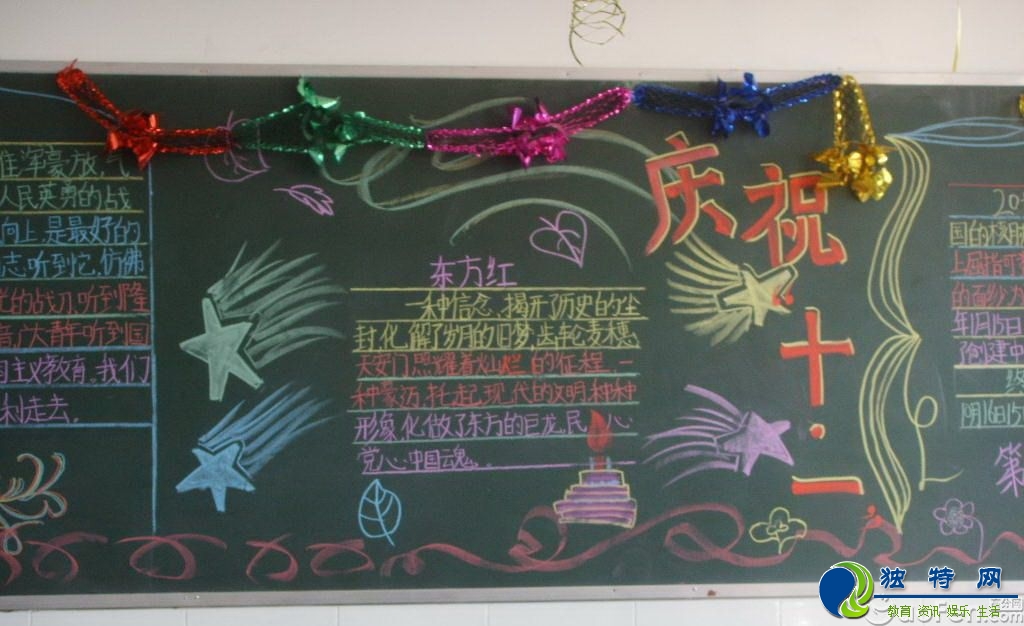 豪放、气
人民英勇的战
向上,是最好的
志听到它,仿佛
的战刀,听到降
广大青年听到国
主义教育。我们
利走去。
东方红
一种信念、揭开了历史的尘
封化、解了岁月的旧梦,齿轮麦穗
天安门照耀着灿烂的征程,一
种豪迈,托起现代的文明,种种
形象化做了东方的巨龙,民心
党心中国魂。
庆祝
十·一
国的
上屈指可
的面纱为
年1月15日
创建中
10月16日15
第
独特网
教育 资讯 娱乐 生活